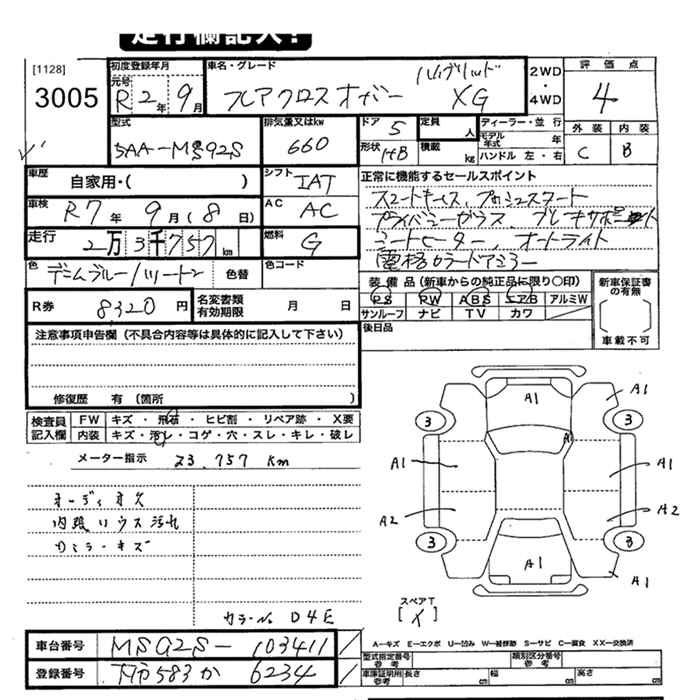 走行欄記入！
[1128]
3005
初度登録年月
元号
R 2年 9月
車名・グレード
ハイブリッド
フレアクロスオーバー XG
2WD
・
4WD
評価点
4
外装 内装
C B
型式
5AA-MS92S
排気量又はkw
660
ドア 5
定員 人
形状 HB
積載 kg
ディーラー・並行
モデル年式 年
ハンドル 左・右
車歴
自家用・( )
シフト
IAT
正常に機能するセールスポイント
スマートキーレス、プッシュスタート
プライバシーガラス、ブレーキサポート
シートヒーター、オートライト
電格カラードアミラー
車検
R7年 9月 (8日)
AC
AC
走行
2万3千757km
燃料
G
色
デニムブルー/ツートン 色替
色コード
装備品（新車からの純正品に限り○印）
PS PW ABS エアB アルミW
サンルーフ ナビ TV カワ
後日品
新車保証書の有無
車載不可
R券
8320円
名変書類有効期限 月 日
注意事項申告欄（不具合内容等は具体的に記入して下さい）
修復歴 有（箇所 ）
検査員記入欄
FW キズ・飛石・ヒビ割・リペア跡・X要
内装 キズ・汚レ・コゲ・穴・スレ・キレ・破レ
メーター指示 23.757 km
オーディオ欠
内張りウス汚れ
Rミラーキズ
カラーNo D4E
A1
A1
3 3
A
A1 A1
A2 A2
3 3
A1
A1
スペアT
[イ]
A－キズ E－エクボ U－凹み W－補修跡 S－サビ C－腐食 XX－交換済
車台番号
MS92S-103411
型式指定番号参考
類別区分番号参考
登録番号
583か 6234
車庫証明用参考
長さ cm 幅 cm 高さ cm